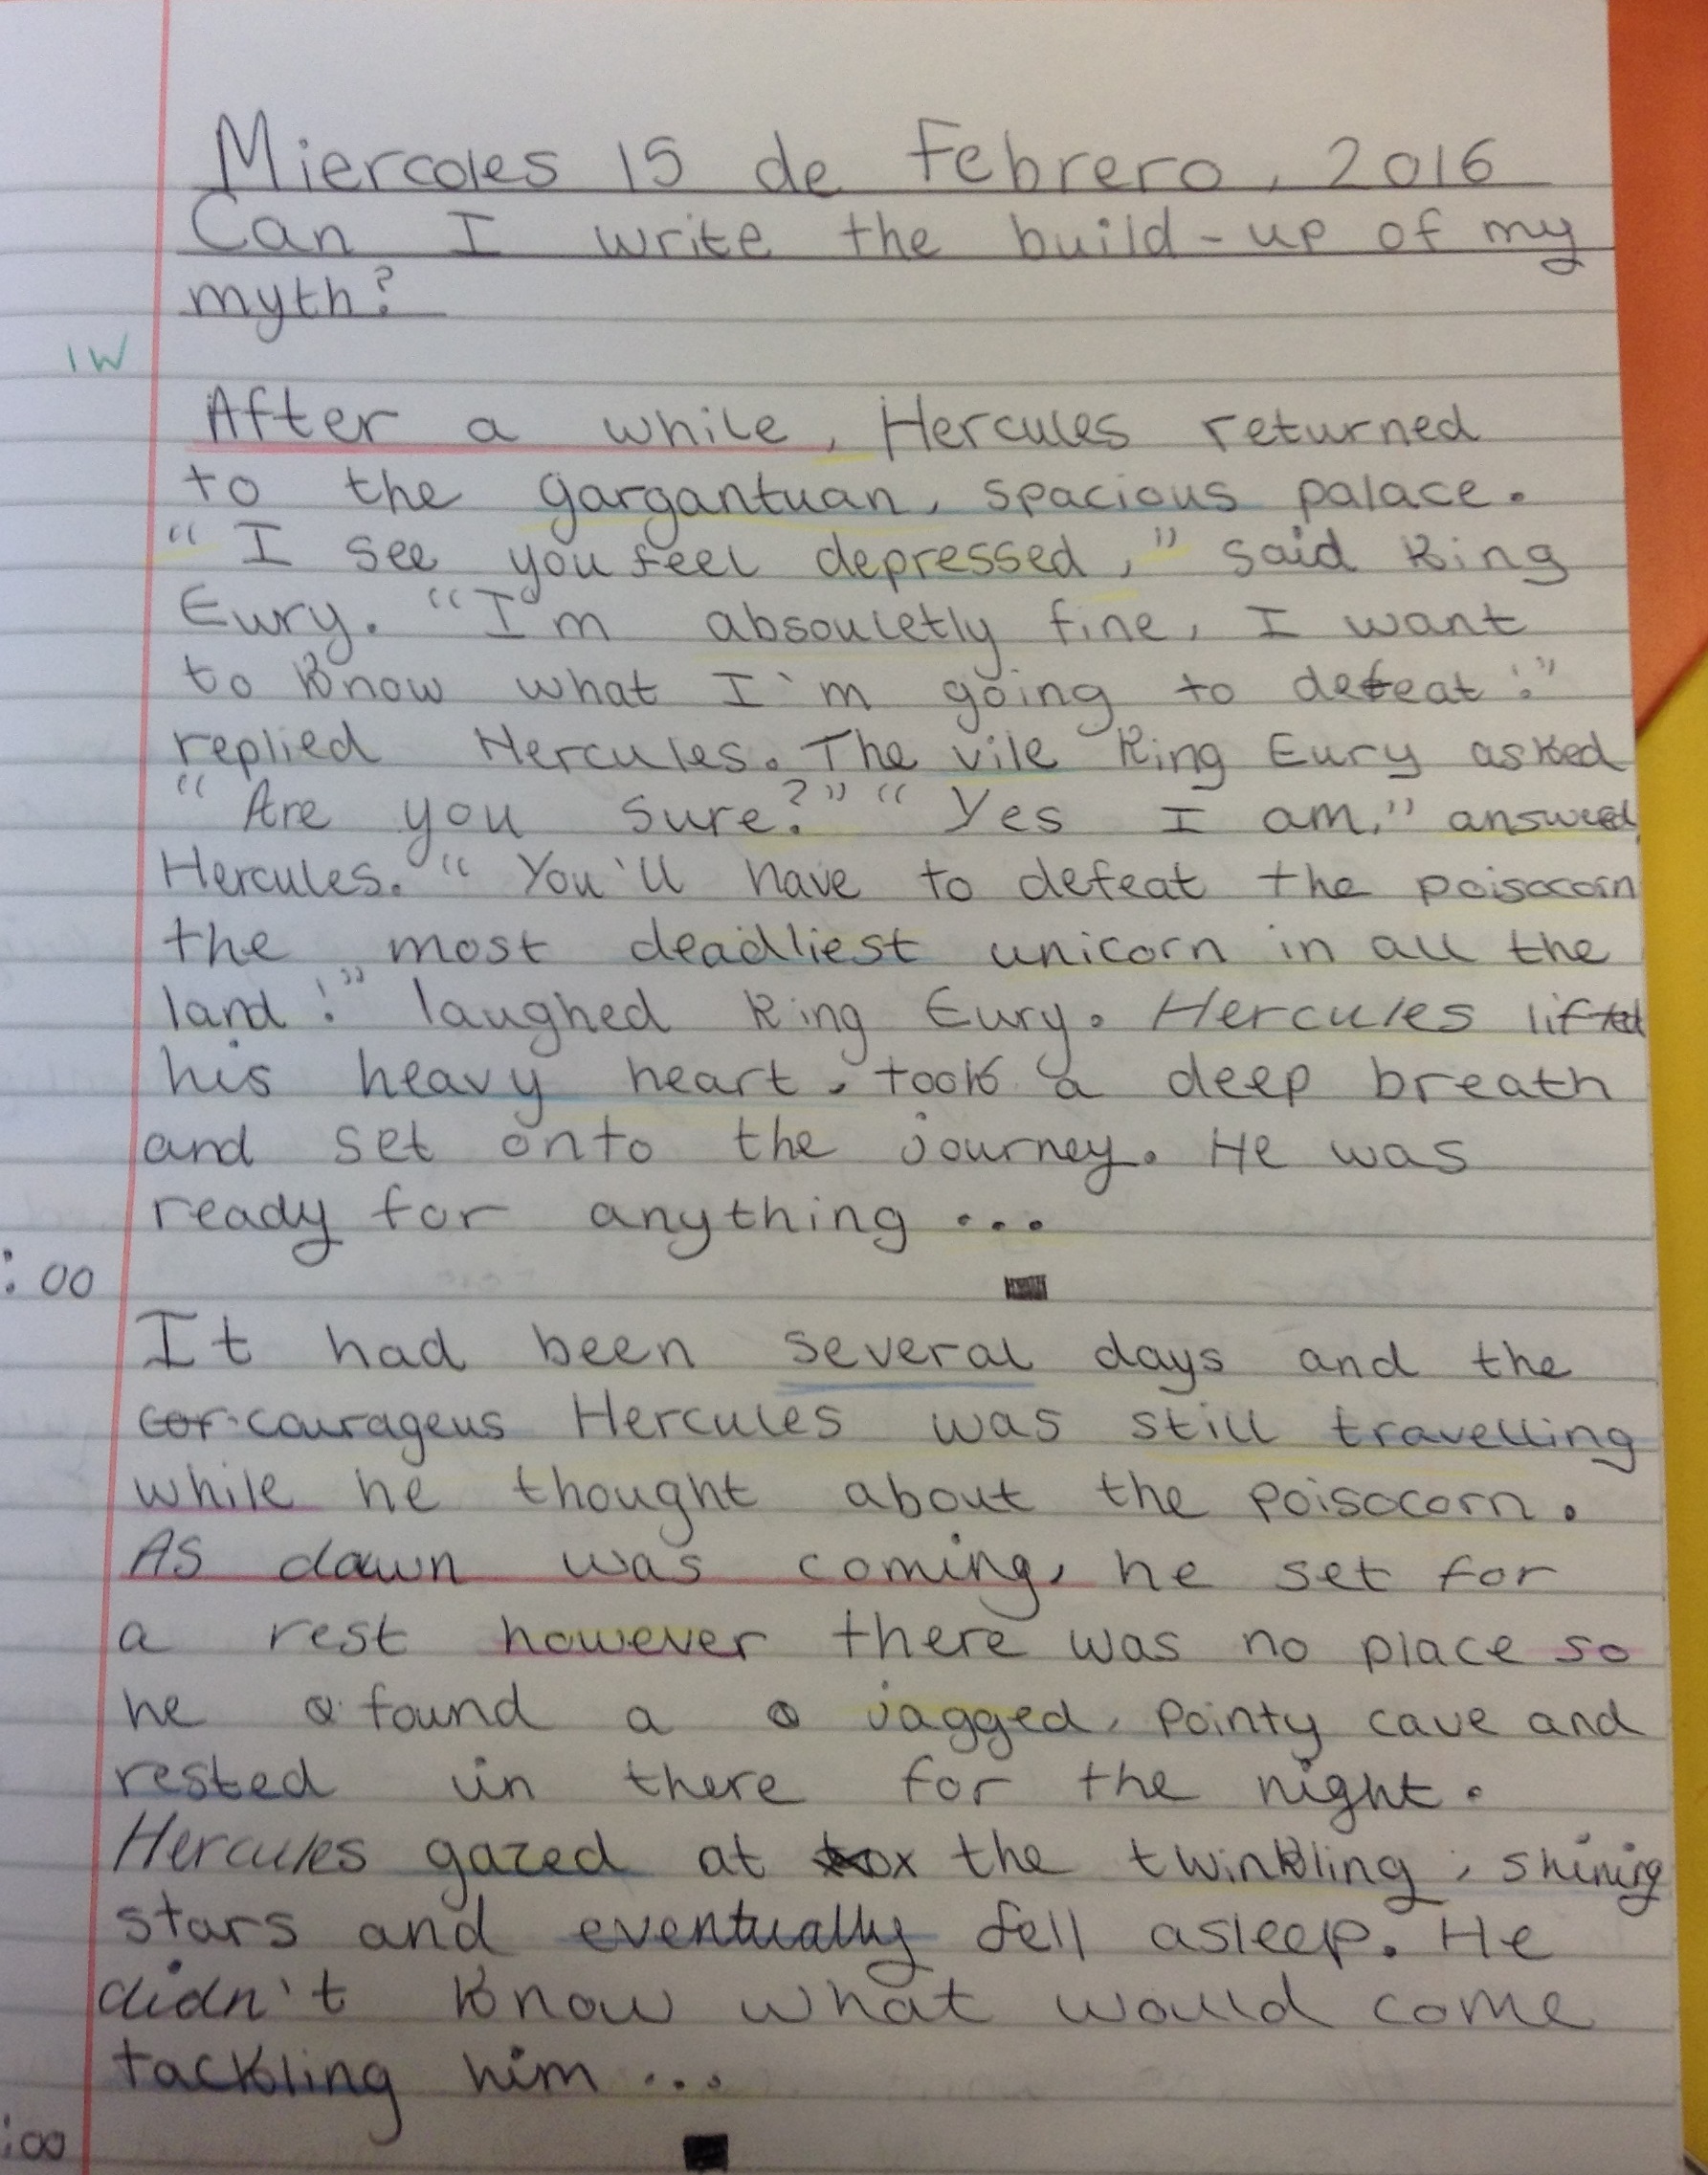 Miercoles 15 de Febrero, 2016
Can I write the build-up of my
myth?
IW
After a while, Hercules returned
to the gargantuan, spacious palace.
"I see you feel depressed," said King
Eury. "I'm absouletly fine, I want
to know what I'm going to defeat!"
replied Hercules. The vile King Eury asked
"Are you sure?" "Yes I am," answered
Hercules. "You'll have to defeat the poisocorn
the most deadliest unicorn in all the
land!" laughed King Eury. Hercules lifted
his heavy heart, took a deep breath
and set onto the journey. He was
ready for anything...
:00
It had been several days and the
cor courageus Hercules was still travelling
while he thought about the poisocorn.
As dawn was coming, he set for
a rest however there was no place so
he found a jagged, pointy cave and
rested in there for the night.
Hercules gazed at the twinkling, shining
stars and eventually fell asleep. He
didn't know what would come
tackling him...
:00